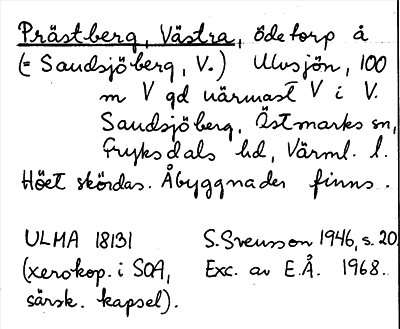 Prästberg, Västra, ödetorp å
(= Sandsjöberg, V.) Ulvsjön, 100
m V gd närmast V i V.
Sandsjöberg, Östmarks sn,
Fryksdals hd, Värml. l.
Höet skördas. Åbyggnader finns.
ULMA 18131 S. Svensson 1946, s. 20
(xerokop. i SOA, Exc. av E.Å. 1968.
särsk. kapsel).